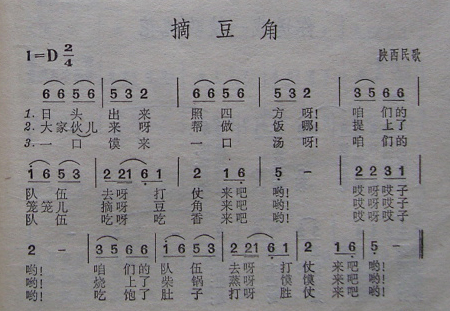 摘豆角
1=D 2/4 陕西民歌
6 6 5 6 | 5 3 2 | 6 6 5 6 | 5 3 2 | 3 5 6 6 |
1. 日头出来照四方呀! 咱们的
2. 大家伙儿来呀帮做饭哪! 提上了
3. 一口馍来一口汤呀! 咱们的
1 6 5 3 | 2 2 1 6 1 | 2 1 6 | 5 - | 3 2 3 1 |
队伍去呀打仗来吧哟! 哎哎哎子
笼笼儿摘呀豆角来吧哟! 哎呀哎子
队伍吃呀吃香来吧哟! 哎哎哎子
2 - | 3 5 6 6 | 1 6 5 3 | 2 21 6 1 | 2 1 6 | 5 - ‖
哟! 咱们的队伍去呀打仗来吧哟!
哟! 烧上了柴锅蒸呀馍馍来吧哟!
哟! 吃饱了肚子打呀胜仗来吧哟!